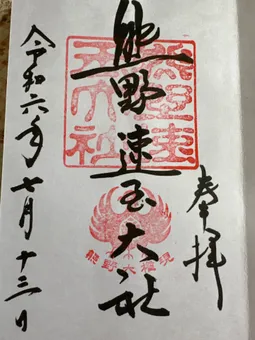 奉拝
熊野速玉大社
熊野速玉大社
熊野大権現
令和六年七月十三日